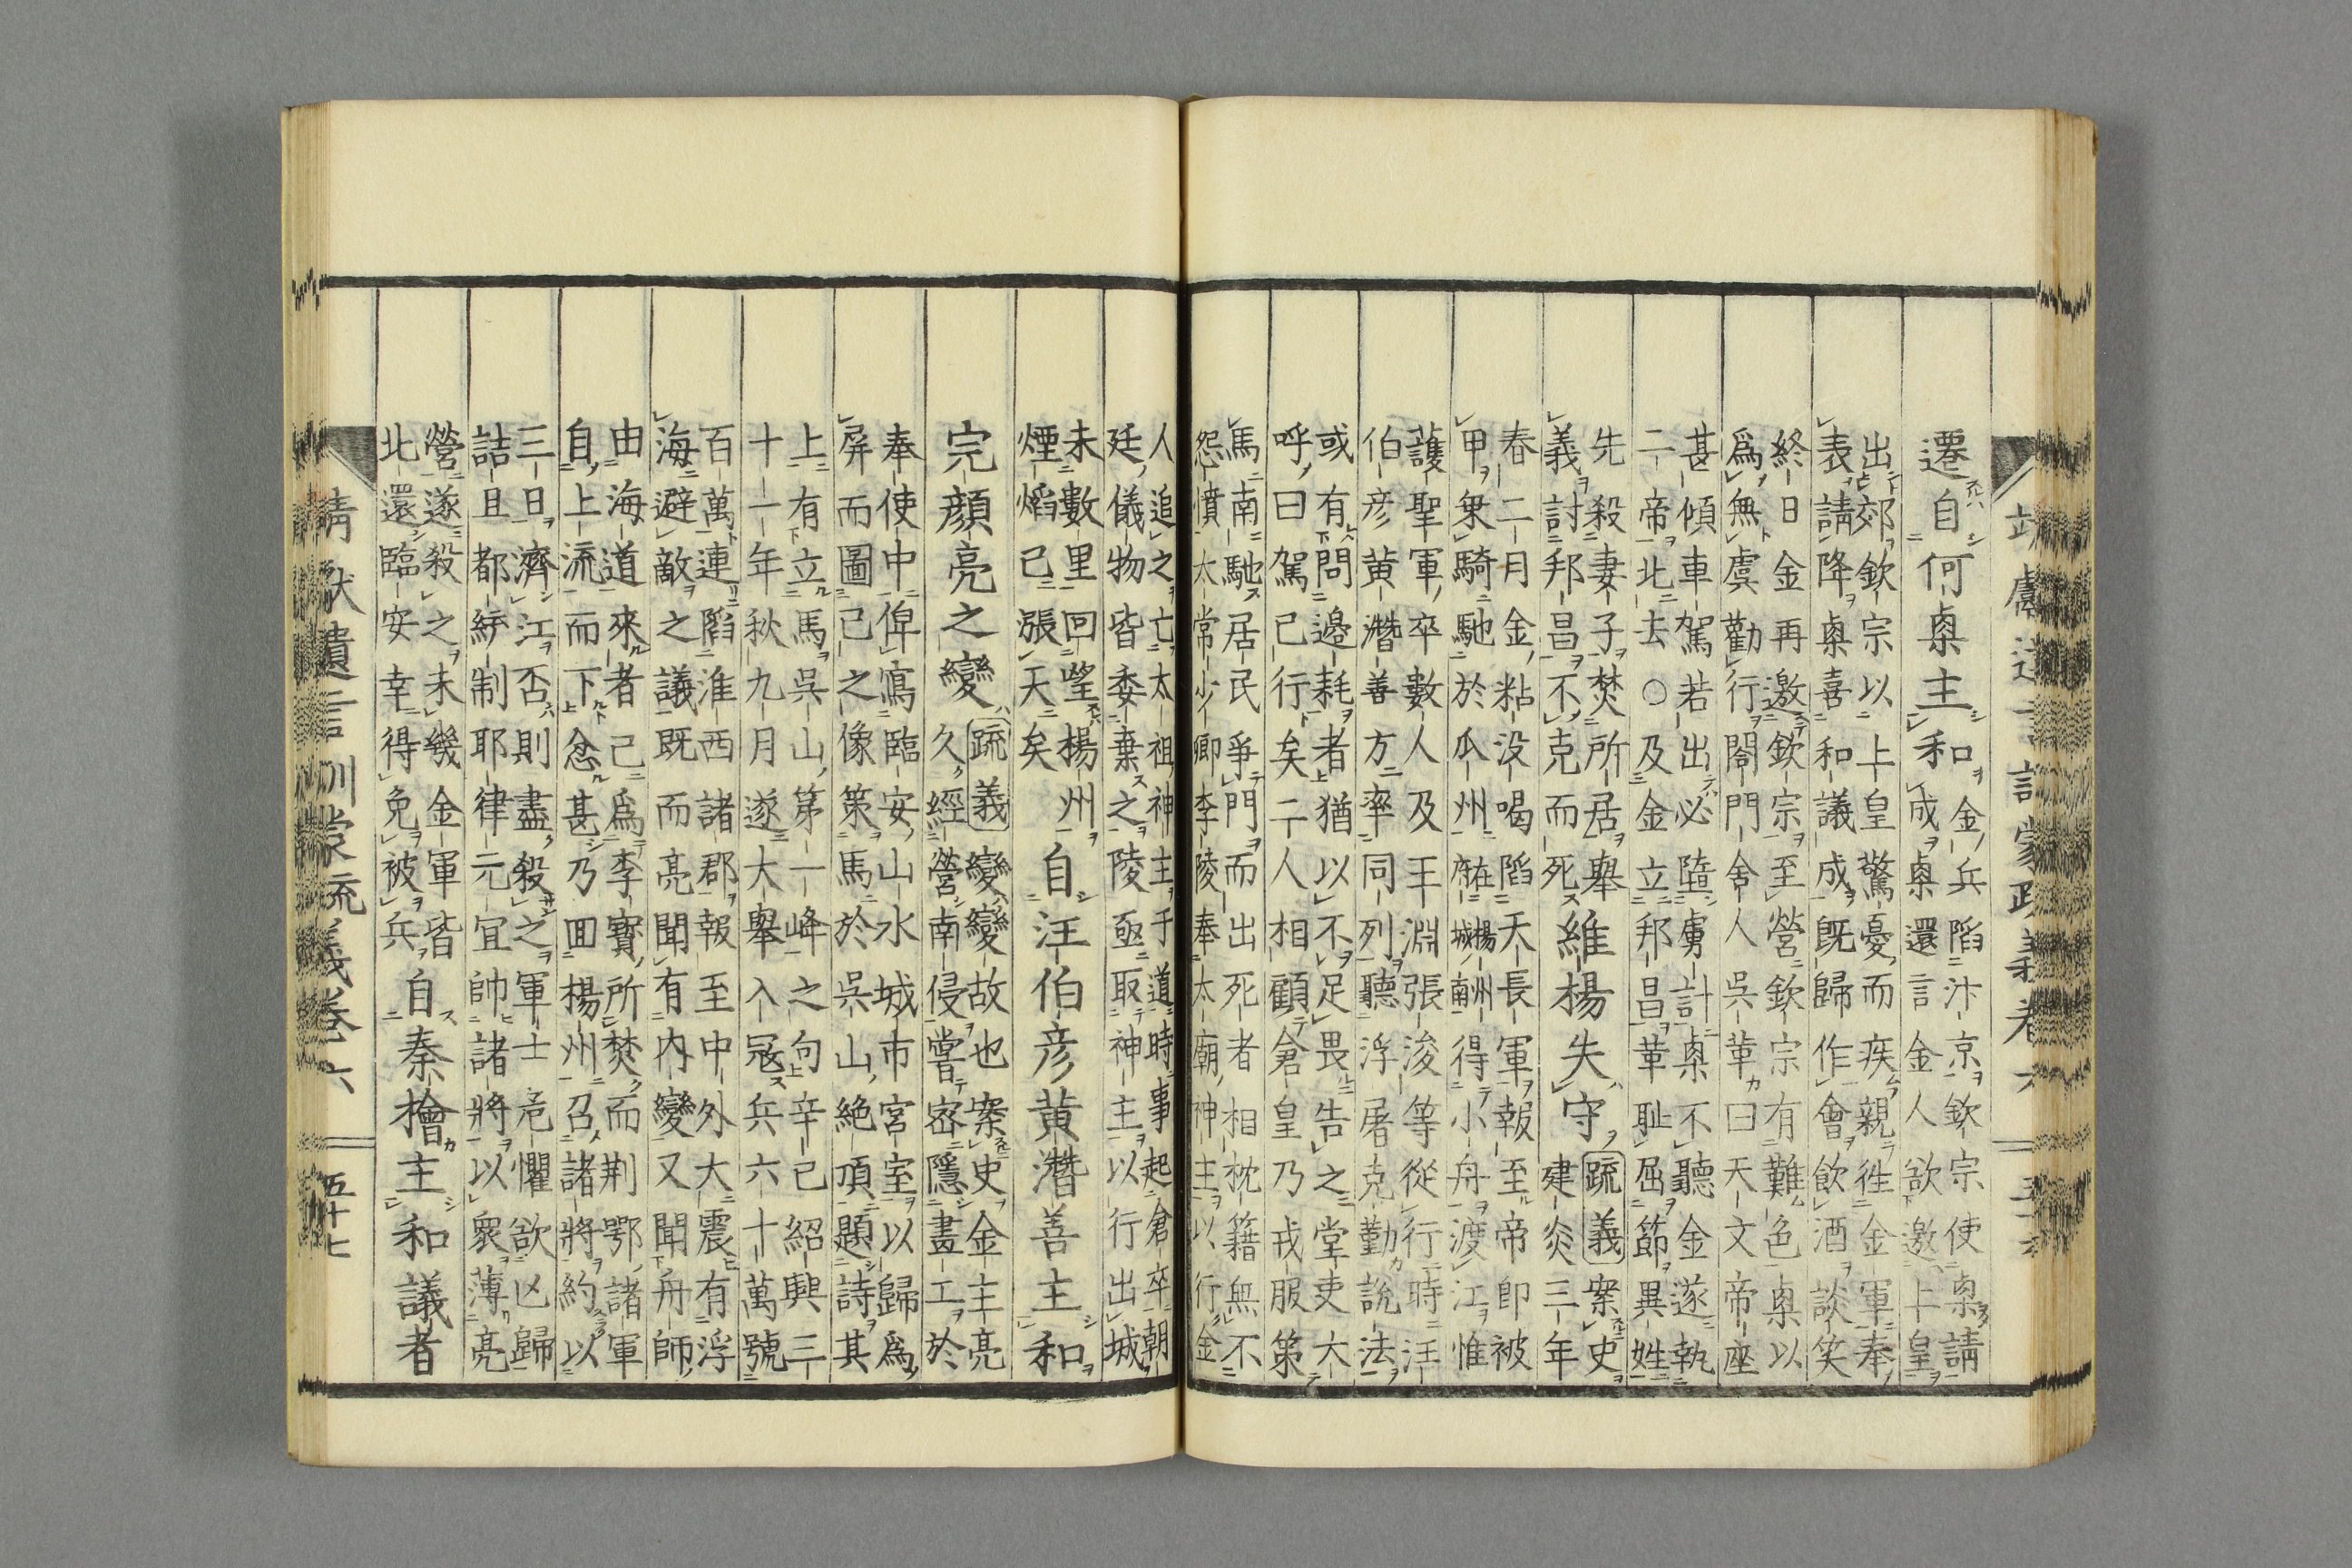 靖獻遺言訓蒙疏義卷六
遷自何㮚主
和金兵陷汴京欽宗使㮚請
和成㮚還言金人欲邀上皇
出郊欽宗以上皇驚憂而疾親徃金軍奉
表請降㮚喜和議成既歸作會飲酒談笑
終日金再邀欽宗至營欽宗有難色㮚以
爲無虞勸行閤門舍人吳革曰天文帝座
甚傾車駕若出必墮虜計㮚不聽金遂執
二帝北去○及金立邦昌革耻屈節異姓
先殺妻子焚所居舉
義討邦昌不克而死
維楊失守
疏義案史
建炎三年
春二月金粘没喝陷天長軍報至帝即被
甲乗騎馳於瓜州在楊州府城南得小舟渡江惟
護聖軍卒數人及王淵張浚等從行時汪
伯彦黄濳善方率同列聽浮屠克勤説法
或有問邊耗者猶以不足畏告之堂吏大
呼曰駕已行矣二人相顧倉皇乃戎服策
馬南馳居民爭門而出死者相枕籍無不
怨憤太常少卿李陵奉太廟神主以行金
人追之亡太祖神主于道時事起倉卒朝
廷儀物皆委棄之陵亟取神主以行出城
未數里回望楊州
煙熖已漲天矣
自汪伯彦黄濳善主和
完顔亮之變
疏義變變故也案史金主亮
久經營南侵嘗密隱畫工於
奉使中俾寫臨安山水城市宮室以歸爲
屏而圖己之像策馬於吳山絶頂題詩其
上有立馬吳山第一峰之句辛已紹興三
十一年秋九月遂大舉入冦兵六十萬號
百萬連陷淮西諸郡報至中外大震有浮
海避敵之議既而亮聞有内變又聞舟師
由海道來者已爲李寶所焚而荆鄂諸軍
自上流而下忿甚乃囬楊州召諸將約以
三日濟江否則盡殺之軍士危懼欲亾歸
詰旦都綂制耶律元宜帥諸將以衆薄亮
營遂殺之未幾金軍皆
北還臨安幸得免被兵
自秦檜主和議者
靖獻遺言訓蒙疏義卷六 五十七